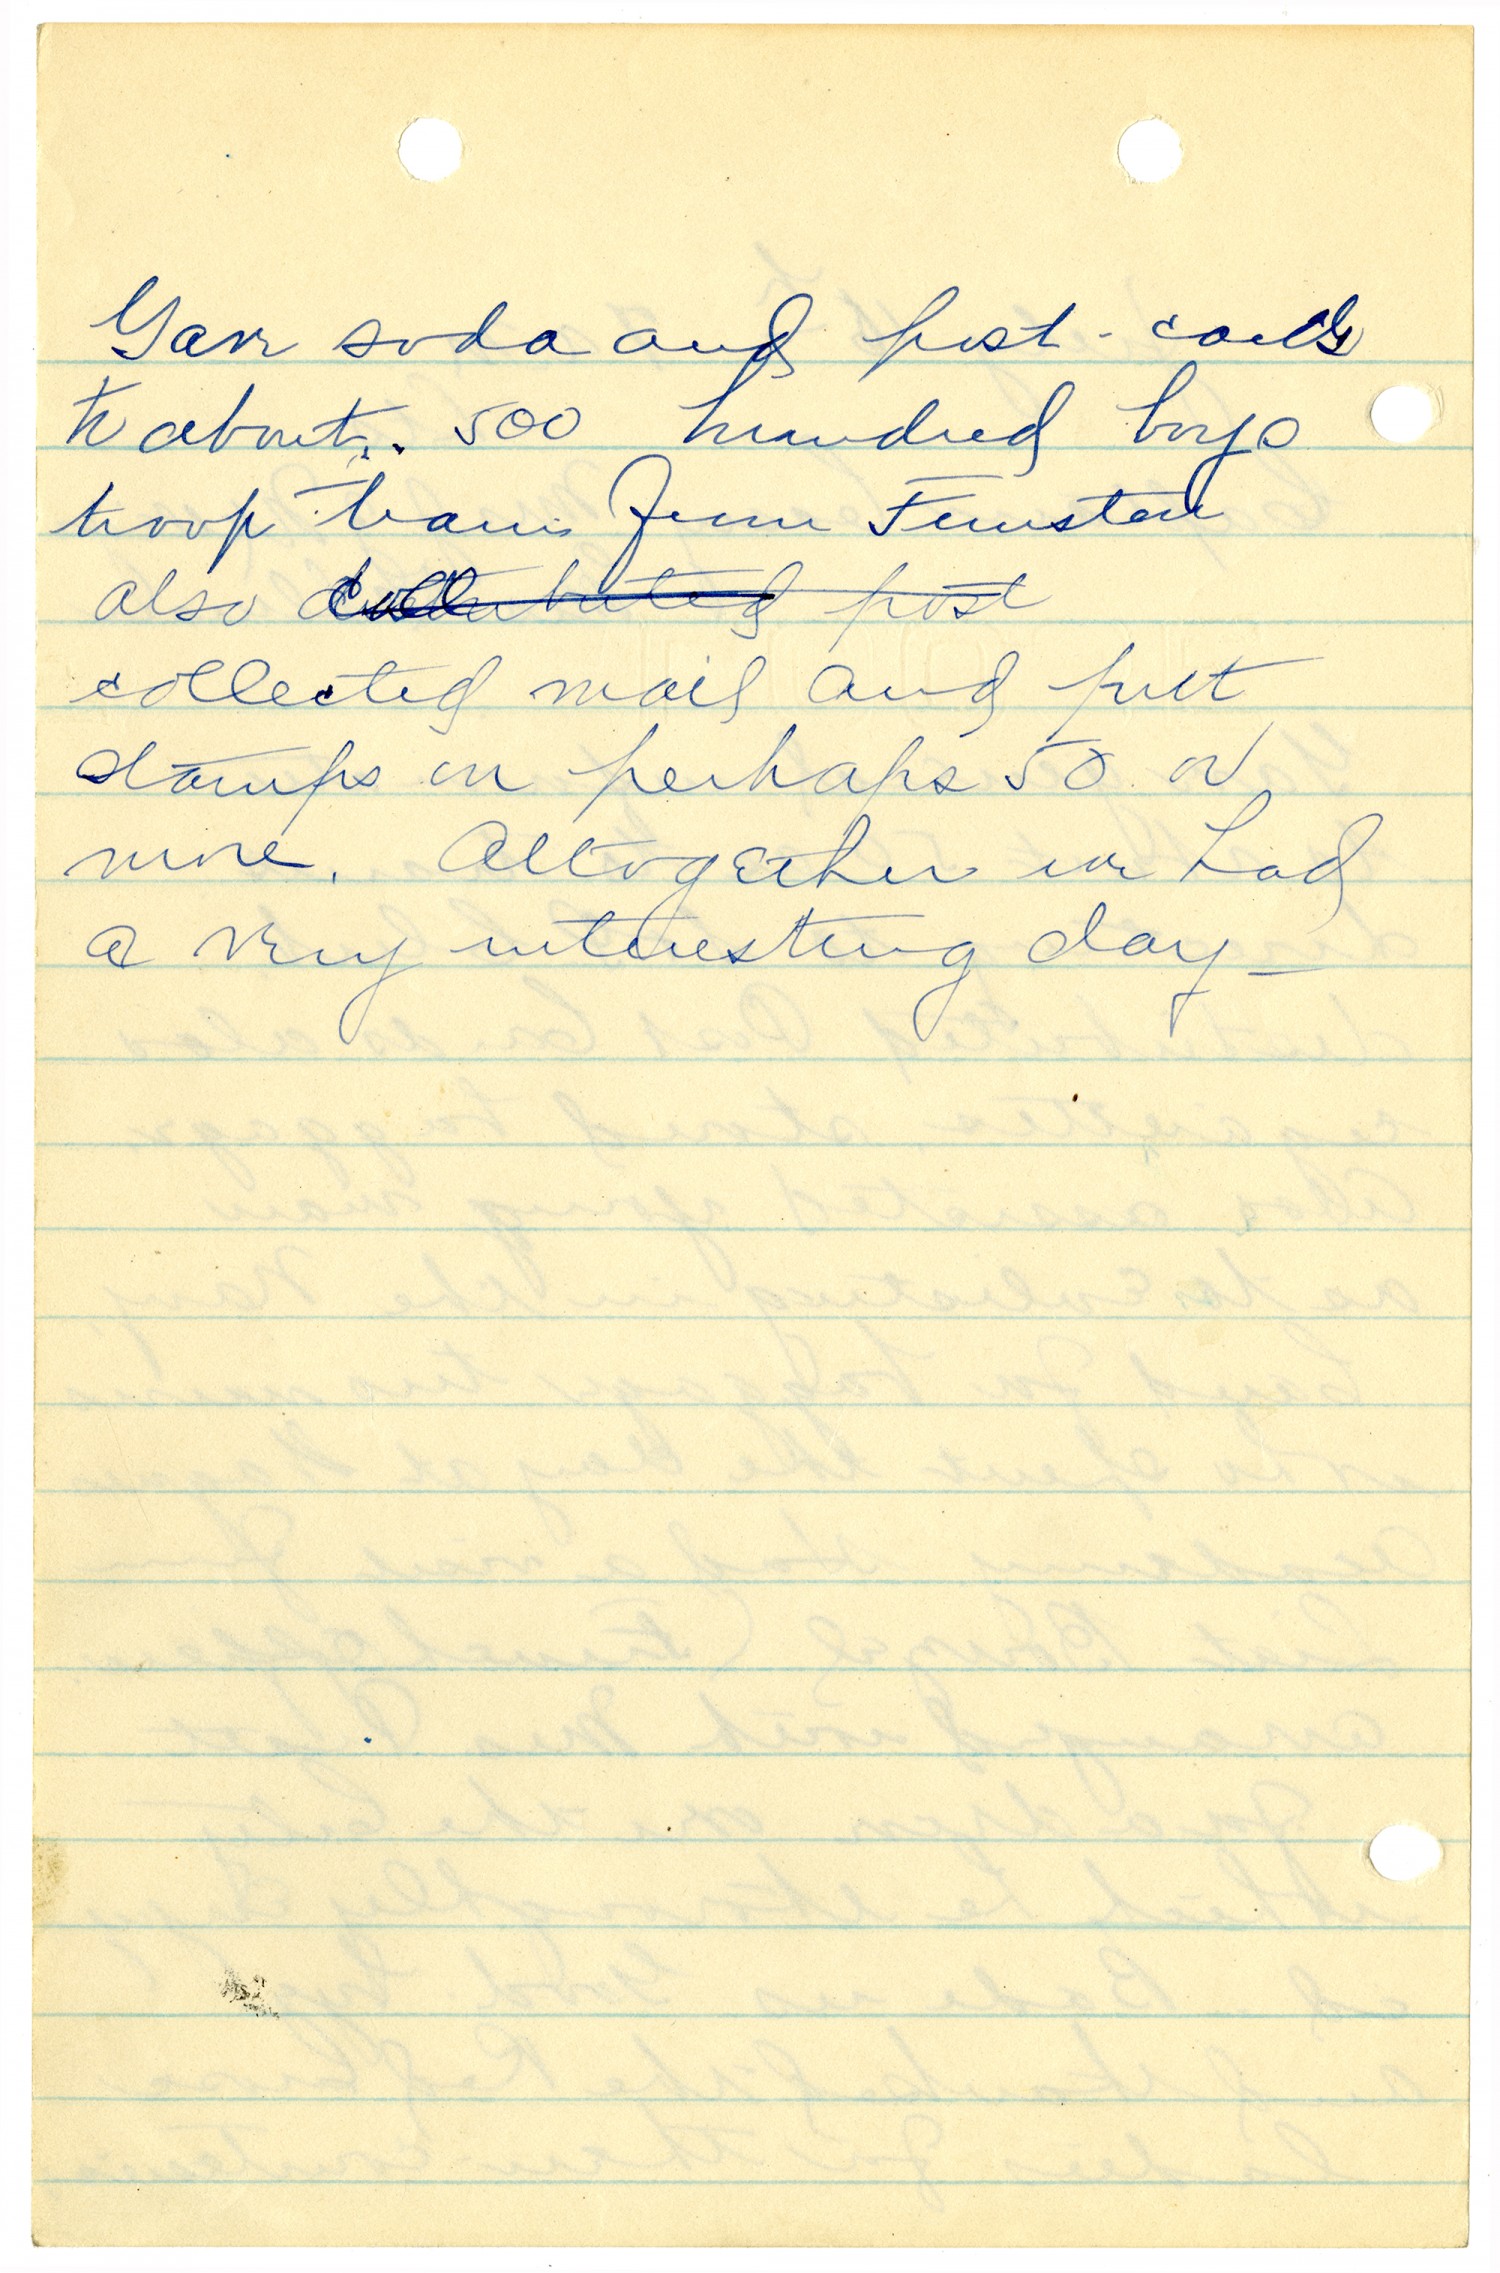 Gave soda and post-cards
to about. 500 hundred boys
troop train from Funston
also distributed post
collected mail and put
stamps on perhaps 50 or
more. Altogether we had
a very interesting day –